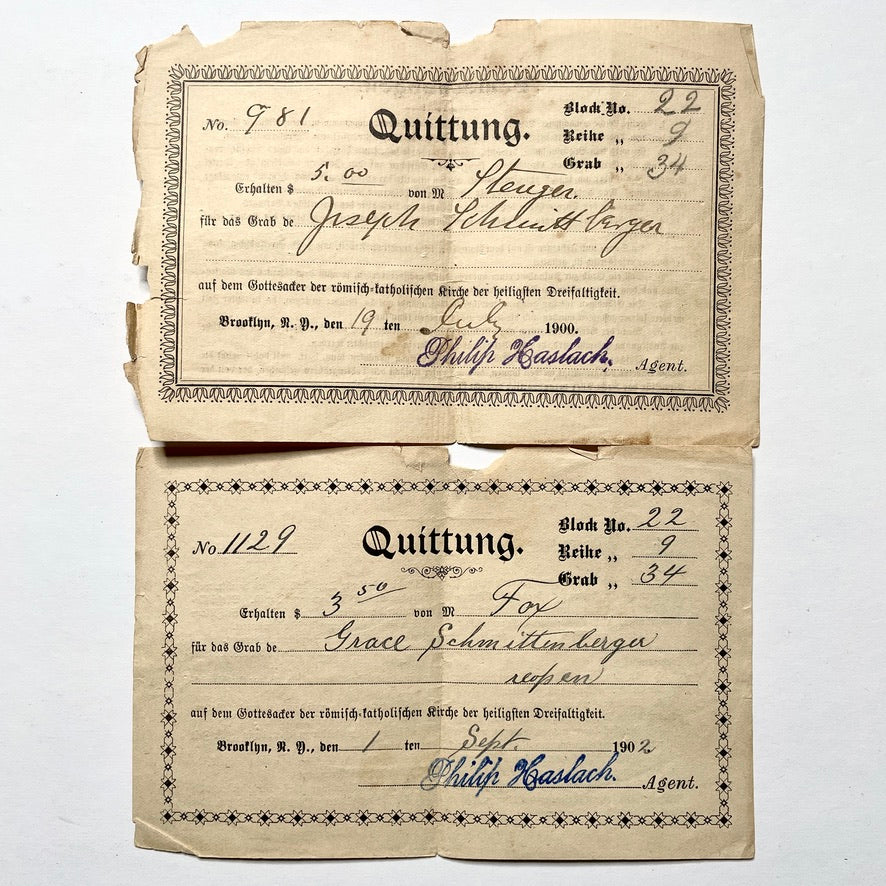 No. 981
Quittung.
Block No. 22
Reihe „ 9
Grab „ 34
Erhalten $ 5.00 von M Stenger.
für das Grab de Joseph Schmittberger
auf dem Gottesacker der römisch-katholischen Kirche der heiligsten Dreifaltigkeit.
Brooklyn, N. Y., den 19 ten July 1900.
Philip Haslach. Agent.
No. 1129
Quittung.
Block No. 22
Reihe „ 9
Grab „ 34
Erhalten $ 3 50 von M Fox
für das Grab de Grace Schmittenberger
reopen
auf dem Gottesacker der römisch-katholischen Kirche der heiligsten Dreifaltigkeit.
Brooklyn, N. Y., den 1 ten Sept. 1902
Philip Haslach. Agent.